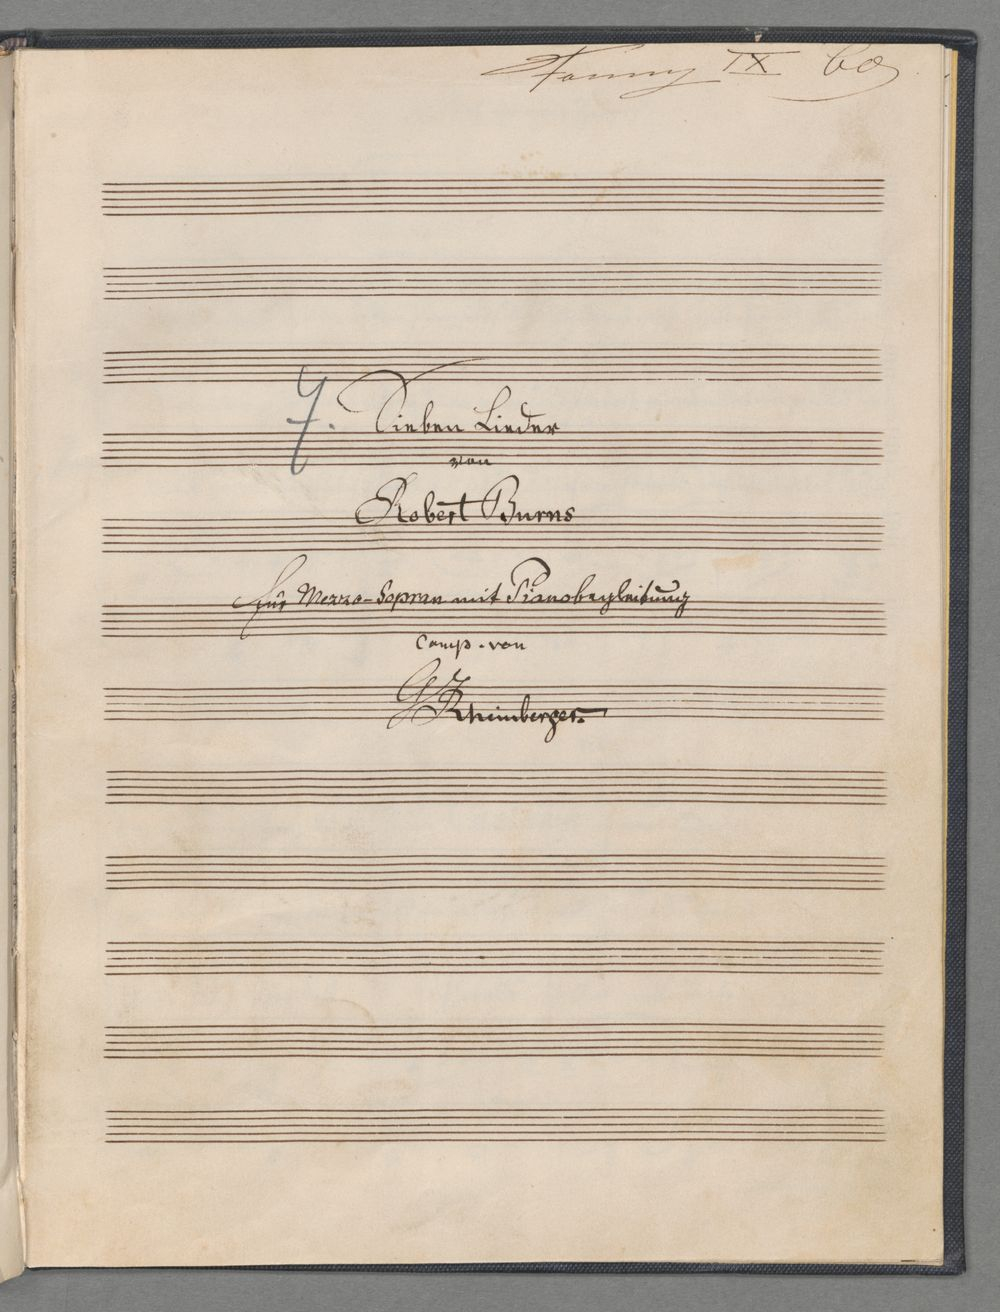 Fanny IX 60
7. Sieben Lieder
von
Robert Burns
für Mezzo-Sopran mit Pianobegleitung
Comp. von
GJRheinberger.